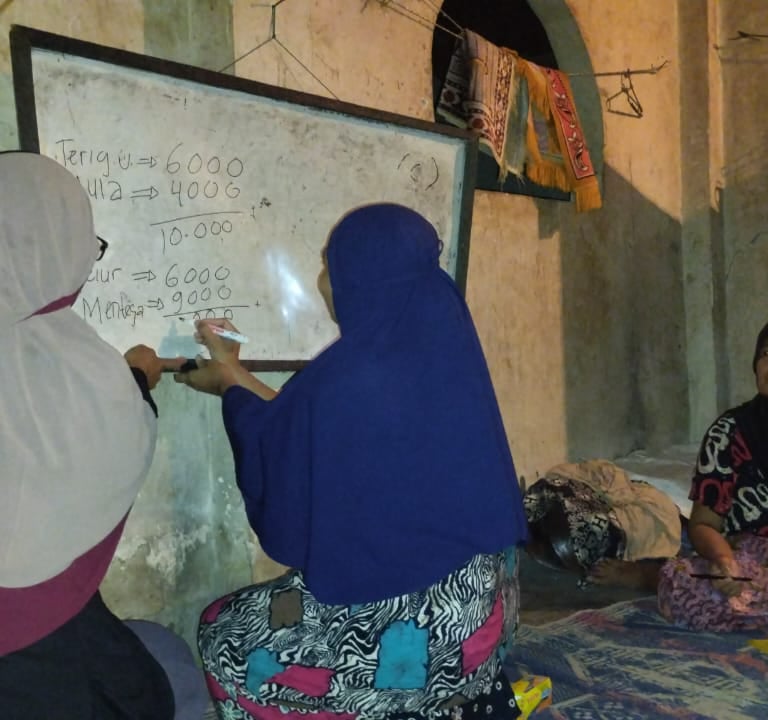 Terigu => 6000
ula => 4000
+
10.000
elur => 6000
Mentega => 9000
+
000